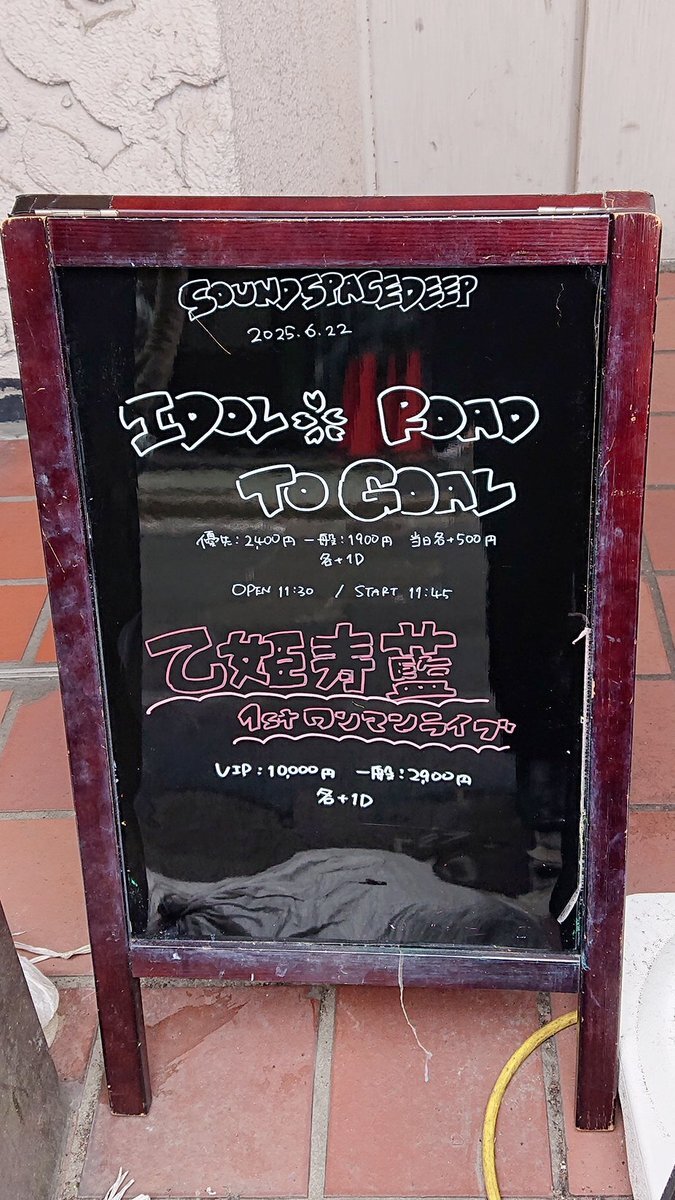 SOUNDSPACEDEEP
2025.6.22
IDOL ROAD
TO GOAL
優先:2400円 一般:1900円 当日各+500円
各+1D
OPEN 11:30 / START 11:45
乙姫寿藍
1stワンマンライブ
VIP:10,000円 一般:2,900円
各+1D